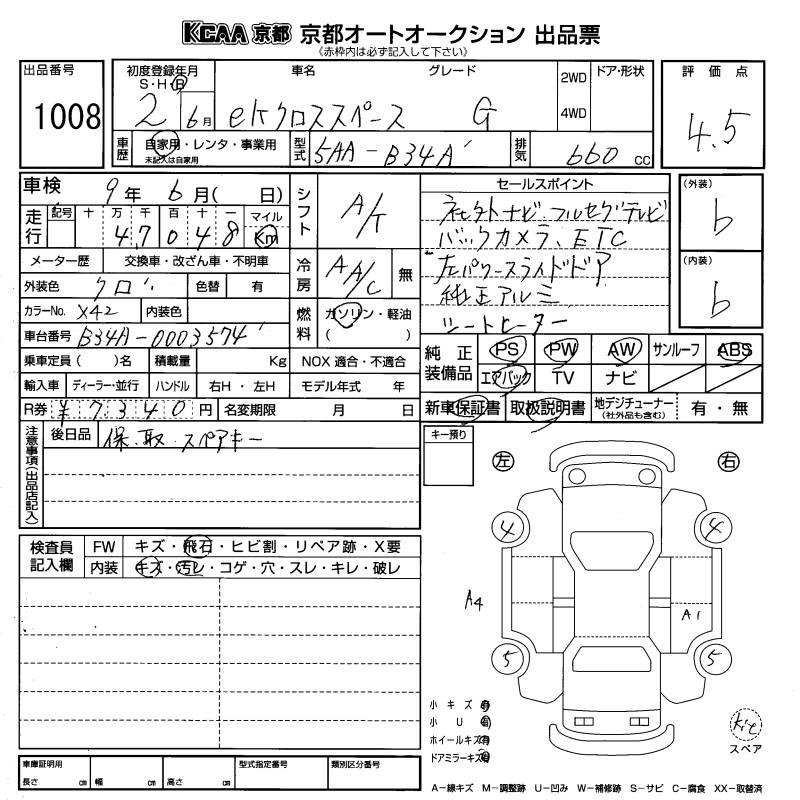 KCAA 京都 京都オートオークション 出品票
《赤枠内は必ず記入して下さい》
出品番号 1008
初度登録年月 S・H・R 2 6月
車名 グレード
eKクロススペース G
2WD 4WD ドア・形状
評価点 4.5
車歴 自家用・レンタ・事業用
未記入は自家用
型式 5AA-B34A
排気 660 CC
車検 9年 6月( 日)
走行 記号 十 万 千 百 十 一 マイル
4 7 0 4 8 Km
メーター歴 交換車・改ざん車・不明車
外装色 クロ 色替 有
カラーNo. X42 内装色
車台番号 B34A-0003574
乗車定員( )名 積載量 Kg
輸入車 ディーラー・並行 ハンドル 右H・左H
R券 ¥7340円 名変期限 月 日
シフト A/T
冷房 AA/C 無
燃料 ガソリン・軽油
( )
NOX 適合・不適合
モデル年式 年
セールスポイント
ネセクトナビ・フルセグテレビ
バックカメラ、ETC
左パワースライドドア
純正アルミ
シートヒーター
(外装) b
(内装) b
純正装備品 PS PW AW サンルーフ ABS
エアバック TV ナビ
新車保証書 取扱説明書 地デジチューナー(社外品も含む) 有・無
注意事項(出品店記入)
後日品 保・取・スペアキー
キー預り
検査員記入欄
FW キズ・飛石・ヒビ割・リペア跡・X要
内装 キズ・汚レ・コゲ・穴・スレ・キレ・破レ
左 右
4 4
A4 A1
5 5
小キズ 有
小U 有
ホイールキズ 有
ドアミラーキズ 有
スペア
車庫証明用
長さ cm 幅 cm 高さ cm
型式指定番号 類別区分番号
A-線キズ M-調整跡 U-凹み W-補修跡 S-サビ C-腐食 XX-取替済